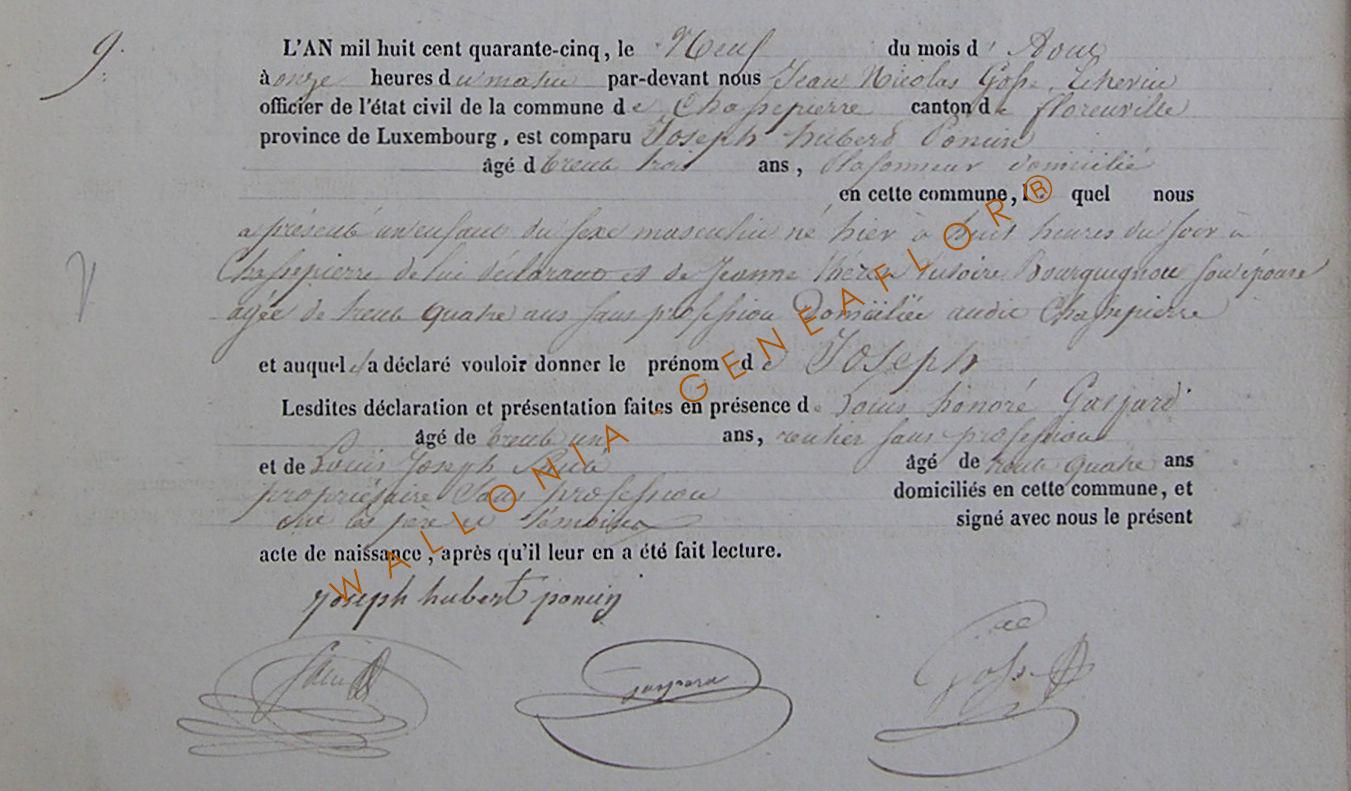 9.
L'AN mil huit cent quarante-cinq, le Neuf du mois d' Aout
à onze heures du matin par-devant nous Jean Nicolas Gosse Echevin
officier de l'état civil de la commune de Chassepierre canton de florenville
province de Luxembourg, est comparu Joseph hubert Poncin
âgé de trente trois ans, Plafonneur domicilié
en cette commune, lequel nous
a présenté un enfant du sexe masculin né hier à huit heures du soir à
Chassepierre de lui déclarant et de Jeanne Bourguignon son épouse
agée de trente quatre ans sans profession Domiciliée audit Chassepierre
et auquel il a déclaré vouloir donner le prénom de Joseph
Lesdites déclaration et présentation faites en présence de Louis honoré Gaspard
âgé de trente un ans, rentier sans profession
et de Louis Joseph âgé de trente quatre ans
propriétaire Sans profession domiciliés en cette commune, et
ont les père et témoins signé avec nous le présent
acte de naissance, après qu'il leur en a été fait lecture.
joseph hubert poncin
Gaspard
Gosse
WALLONIA - GENEAFLOR®